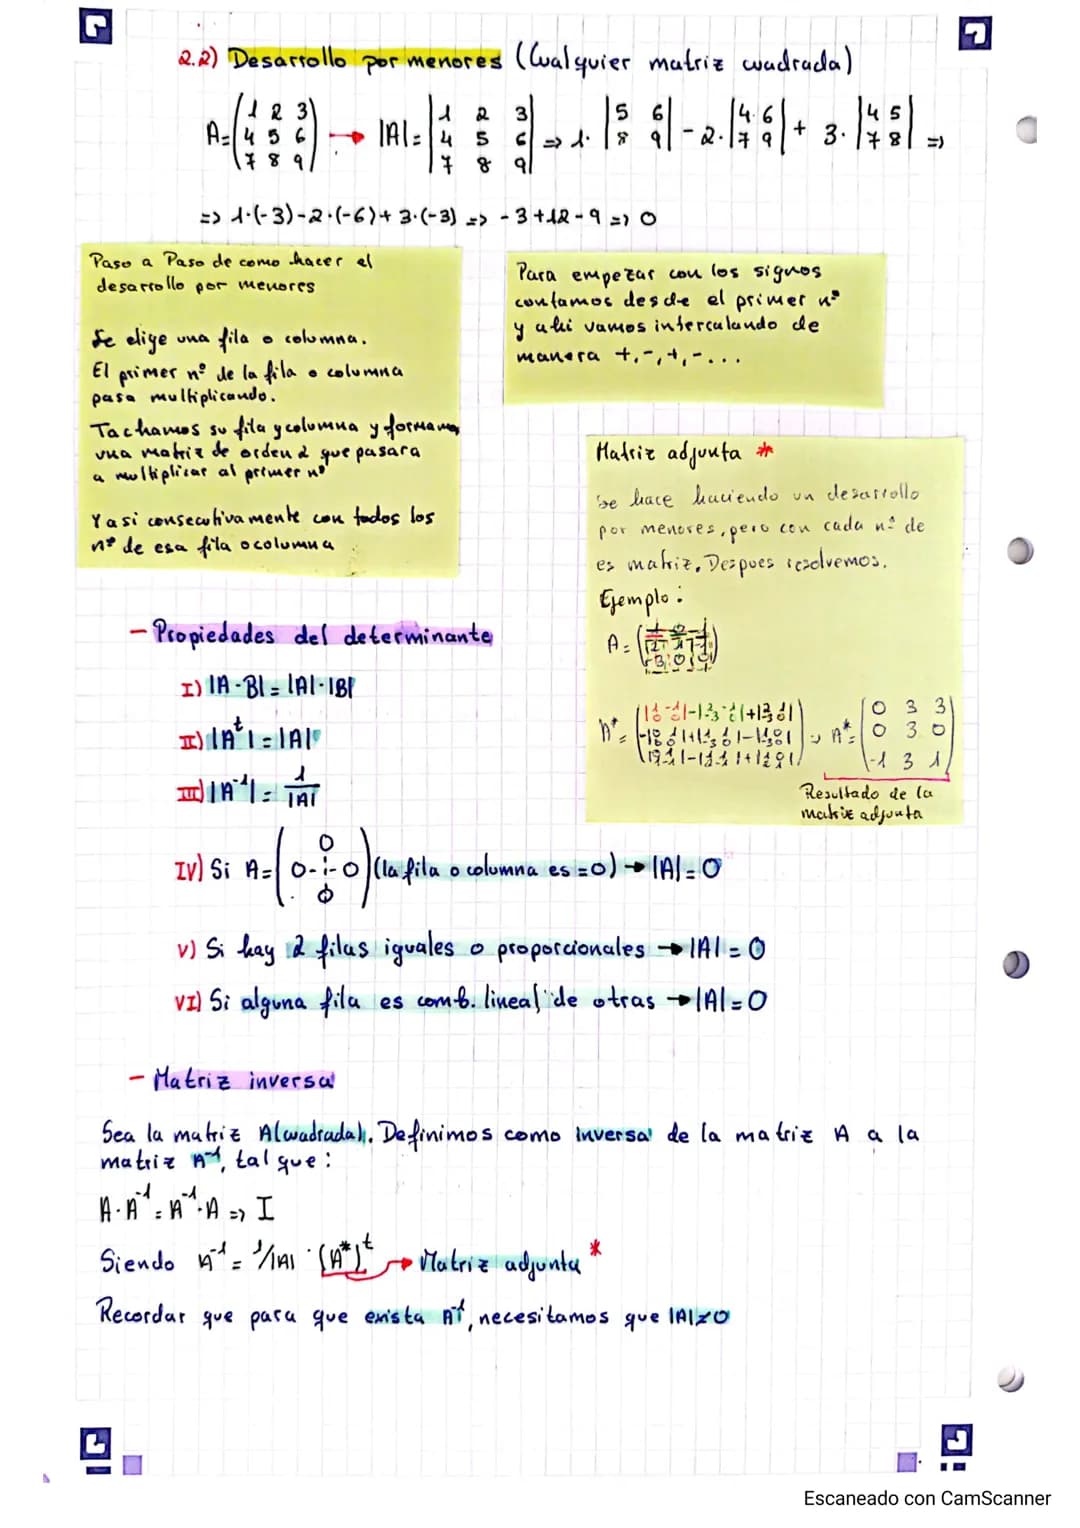 2.2) Desarrollo por menores (Cualquier matriz cuadrada)
A=(1 2 3 / 4 5 6 / 7 8 9) → |A|=|1 2 3 / 4 5 6 / 7 8 9| => 1·|5 6 / 8 9| -2·|4 6 / 7 9| + 3·|4 5 / 7 8| =>
=> 1·(-3)-2·(-6)+3·(-3) => -3+12-9 => 0
Paso a Paso de como hacer el
desarrollo por menores
Se elige una fila o columna.
El primer nº de la fila o columna
pasa multiplicando.
Tachamos su fila y columna y formamos
una matriz de orden 2 que pasara
a multiplicar al primer nº
Y asi consecutivamente con todos los
nº de esa fila o columna
Para empezar con los signos
contamos desde el primer nº
y ahi vamos intercalando de
manera +,-,+,-...
Matriz adjunta *
Se hace haciendo un desarrollo
por menores, pero con cada nº de
es matriz. Despues resolvemos.
Ejemplo:
A =
A* =
A* = (0 3 3 / 0 3 0 / -1 3 1)
Resultado de la
matriz adjunta
- Propiedades del determinante
I) |A·B| = |A|·|B|
II) |Aᵗ| = |A|
III) |A⁻¹| = 1/|A|
IV) Si A=(0 / 0-¦-0 / 0) (la fila o columna es =0) → |A| = 0
V) Si hay 2 filas iguales o proporcionales → |A| = 0
VI) Si alguna fila es comb. lineal de otras → |A| = 0
- Matriz inversa
Sea la matriz A(cuadrada). Definimos como inversa de la matriz A a la
matriz A⁻¹, tal que:
A·A⁻¹ = A⁻¹·A => I
Siendo A⁻¹ = 1/|A| · (A*)ᵗ → Matriz adjunta *
Recordar que para que exista A⁻¹, necesitamos que |A|≠0
Escaneado con CamScanner